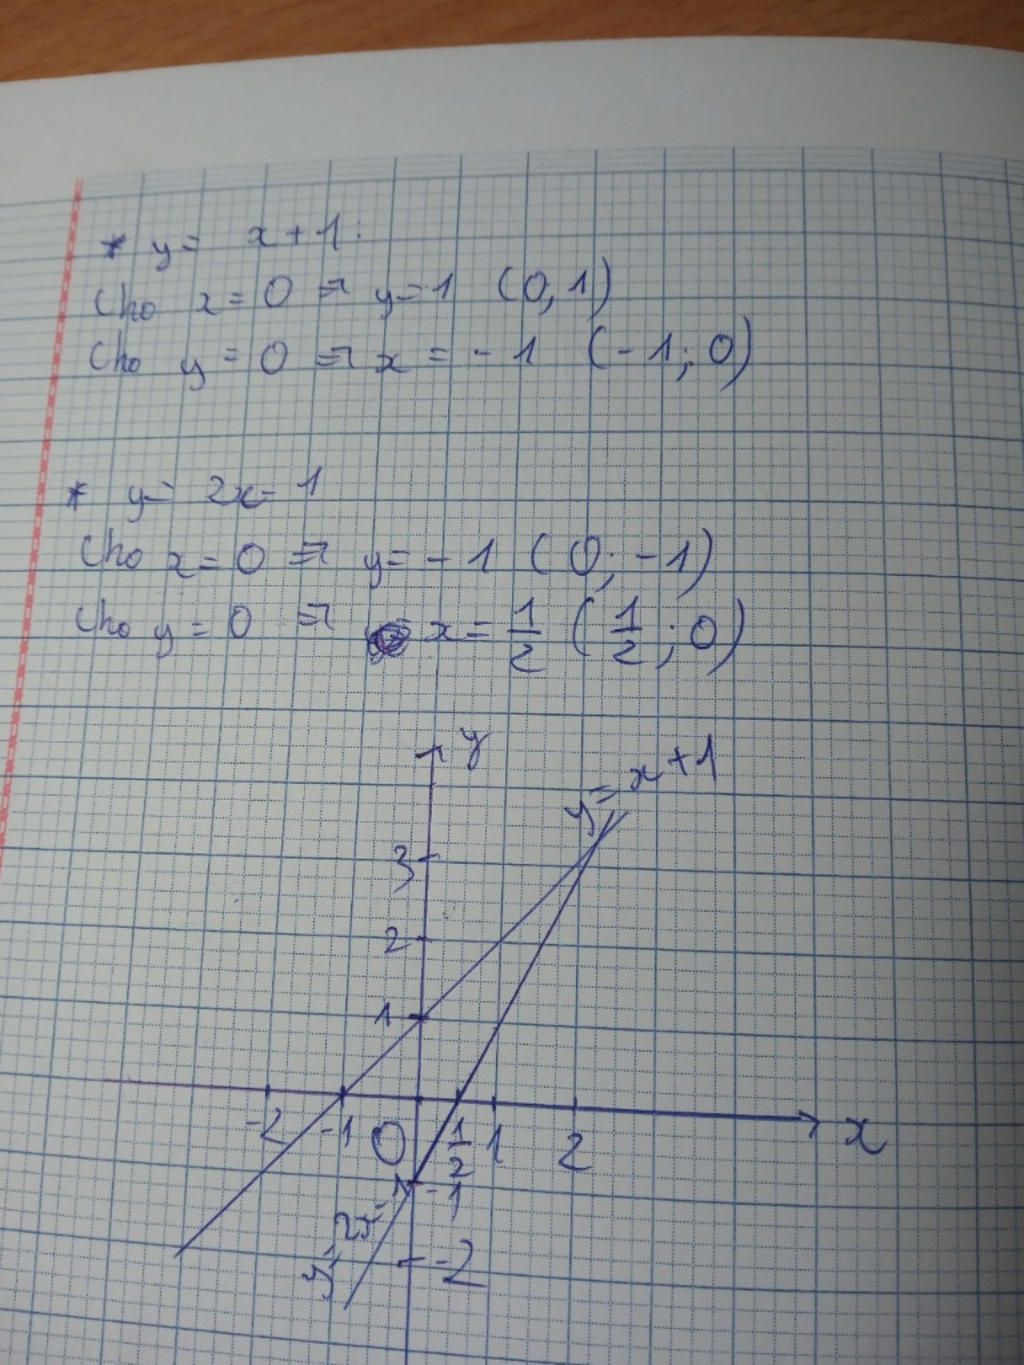 * y = x + 1 :
Cho x = 0 ⇒ y = 1 (0, 1)
Cho y = 0 ⇒ x = - 1 (- 1; 0)
* y = 2x - 1
Cho x = 0 ⇒ y = - 1 (0; - 1)
Cho y = 0 ⇒ x = 1/2 (1/2; 0)
y
y = x + 1
3
2
1
-2 -1 O 1/2 1 2 x
-1
y = 2x - 1
-2